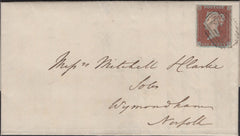 Messrs Mitchell & Clarke
Sols
Wymondham
Norfolk